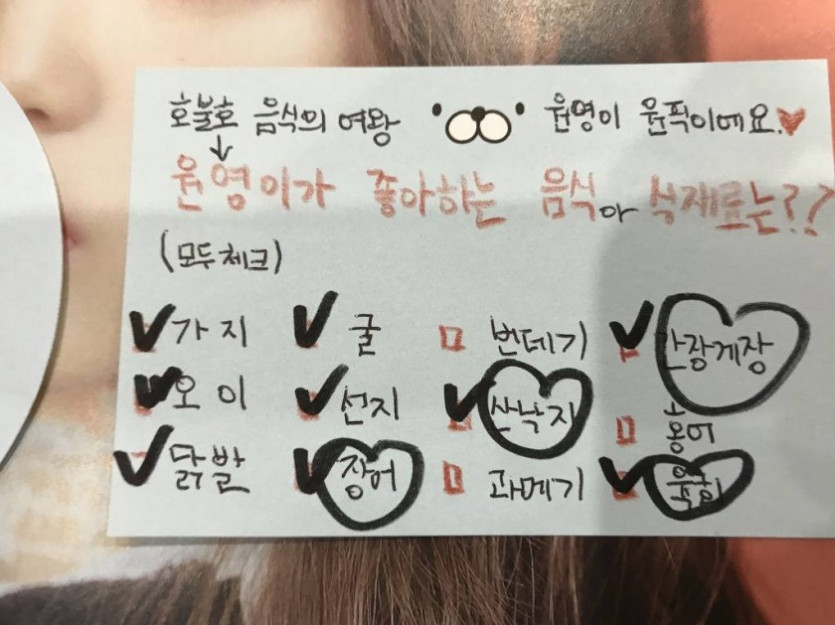 호불호 음식의 여왕 원영이 원픽이에요.♥
↓
원영이가 좋아하는 음식아 식재료는??
(모두체크)
✔가지 ✔굴 □번데기 ✔간장게장
✔오이 ✔선지 ✔산낙지 □홍어
✔닭발 ✔장어 □과메기 ✔육회